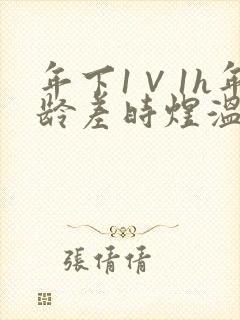 年下1V1h年
龄差時煜溫
張倩倩